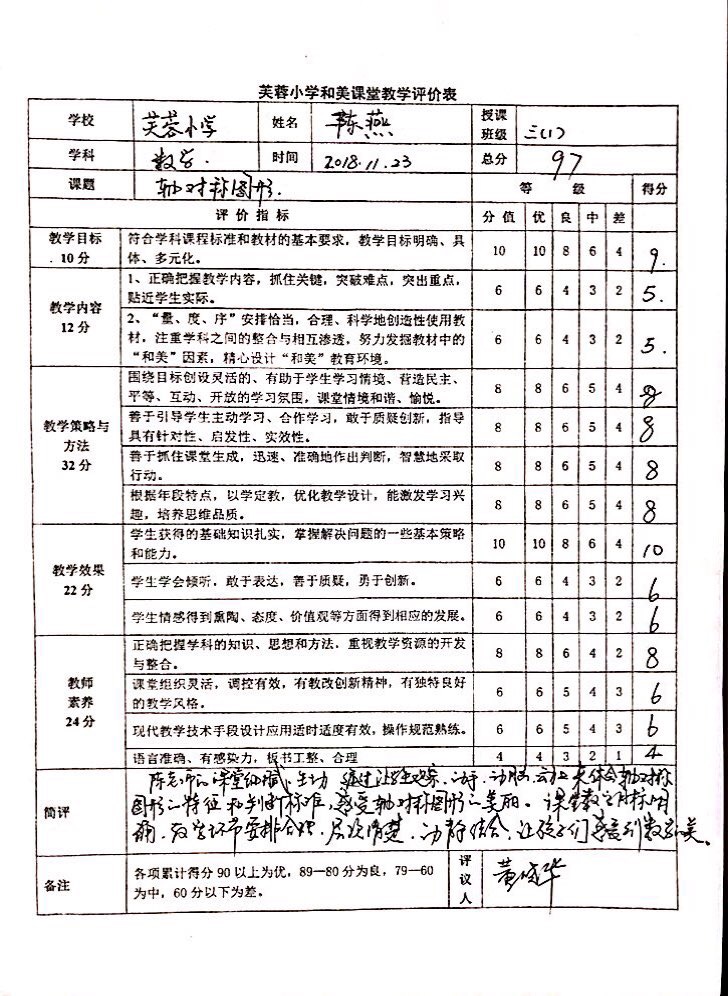 芙蓉小学和美课堂教学评价表
学校 芙蓉小学 姓名 陈燕 授课班级 三(1)
学科 数学. 时间 2018.11.23 总分 97
课题 轴对称图形. 等 级 得分
评 价 指 标 分 值 优 良 中 差
教学目标 10分 符合学科课程标准和教材的基本要求，教学目标明确、具
体、多元化。 10 10 8 6 4 9.
教学内容 12分 1、正确把握教学内容，抓住关键，突破难点，突出重点，
贴近学生实际。 6 6 4 3 2 5.
2、“量、度、序”安排恰当，合理、科学地创造性使用教
材，注重学科之间的整合与相互渗透，努力发掘教材中的
“和美”因素，精心设计“和美”教育环境。 6 6 4 3 2 5.
教学策略与方法 32分 围绕目标创设灵活的、有助于学生学习情境、营造民主、
平等、互动、开放的学习氛围，课堂情境和谐、愉悦。 8 8 6 5 4 8
善于引导学生主动学习、合作学习，敢于质疑创新，指导
具有针对性、启发性、实效性。 8 8 6 5 4 8
善于抓住课堂生成，迅速、准确地作出判断，智慧地采取
行动。 8 8 6 5 4 8
根据年段特点，以学定教，优化教学设计，能激发学习兴
趣，培养思维品质。 8 8 6 5 4 8
教学效果 22分 学生获得的基础知识扎实，掌握解决问题的一些基本策略
和能力。 10 10 8 6 4 10
学生学会倾听，敢于表达，善于质疑，勇于创新。 6 6 4 3 2 6
学生情感得到熏陶、态度、价值观等方面得到相应的发展。 6 6 4 3 2 6
教师素养 24分 正确把握学科的知识、思想和方法，重视教学资源的开发
与整合。 8 8 6 4 2 8
课堂组织灵活，调控有效，有教改创新精神，有独特良好
的教学风格。 6 6 5 4 3 6
现代教学技术手段设计应用适时适度有效，操作规范熟练。 6 6 5 4 3 6
语言准确、有感染力，板书工整、合理 4 4 3 2 1 4
简评 陈老师的课堂细腻、生动 通过让学生观察、动手、动脑 体会轴对称
图形的特征和判断标准，感受轴对称图形的美丽。课堂教学目标明
确，教学环节安排合理，层次清楚，动静结合，让孩子们享受到数学的美。
备注 各项累计得分90以上为优，89—80分为良，79—60
为中，60分以下为差。 评议人 黄晓华